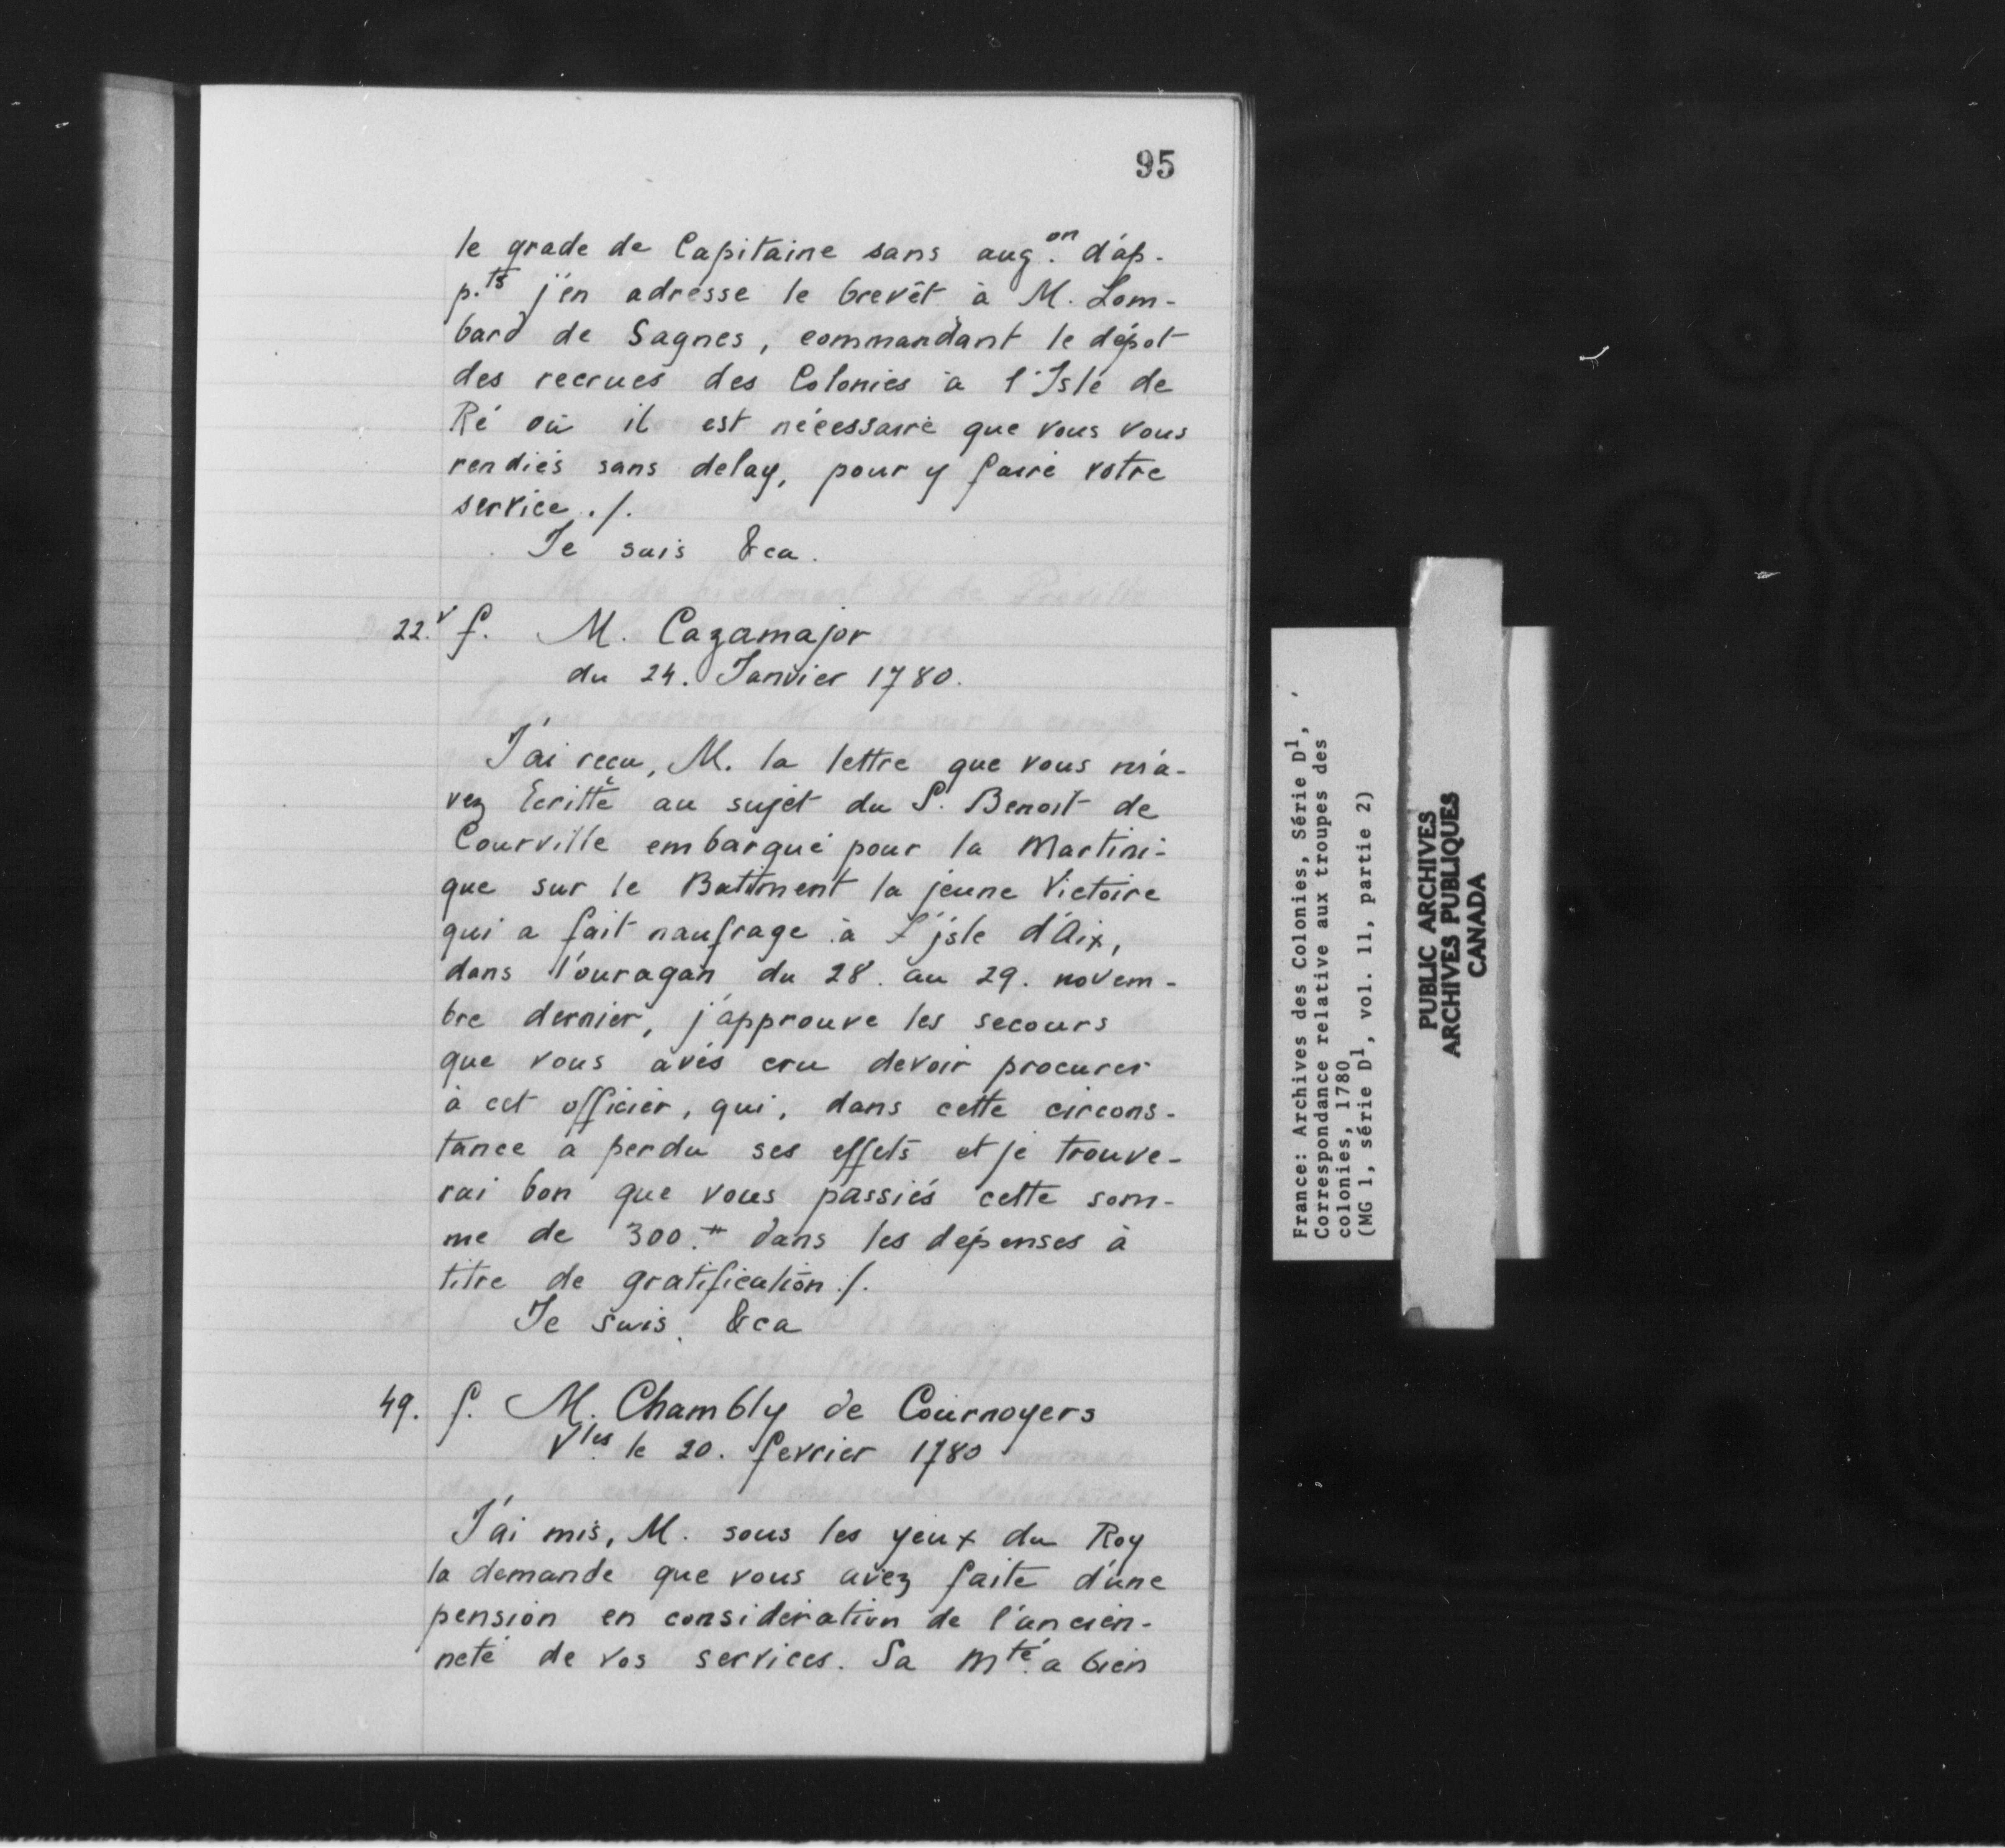 95
le grade de Capitaine sans aug.on d'ap-
p.ts j'en adresse le brevêt à M. Lom-
bard de Sagnes, commandant le dépot
des recrues des Colonies à l'Isle de
Ré où il est nécessaire que vous vous
rendiés sans delay, pour y faire votre
service ./.
Je suis &ca.
22.v f. M. Cazamajor
du 24. Janvier 1780.
J'ai recu, M. la lettre que vous m'a-
vez Ecritte au sujet du S. Benoit de
Courville embarqué pour la Martini-
que sur le Batiment la jeune Victoire
qui a fait naufrage à L'jsle d'Aix,
dans l'ouragan du 28. au 29. novem-
bre dernier, j'approuve les secours
que vous avés cru devoir procurer
à cet officier, qui, dans cette circons-
tance a perdu ses effets et je trouve-
rai bon que vous passiés cette som-
me de 300.# dans les dépenses à
titre de gratification ./.
Je suis &ca
49. f. M. Chambly de Cournoyers
V.les le 20. fevrier 1780
J'ai mis, M. sous les yeux du Roy
la demande que vous avez faite d'une
pension en considération de l'ancien-
neté de vos services. Sa Mté a bien
France: Archives des Colonies, Série D1,
Correspondance relative aux troupes des
colonies, 1780
(MG 1, série D1, vol. 11, partie 2)
PUBLIC ARCHIVES
ARCHIVES PUBLIQUES
CANADA